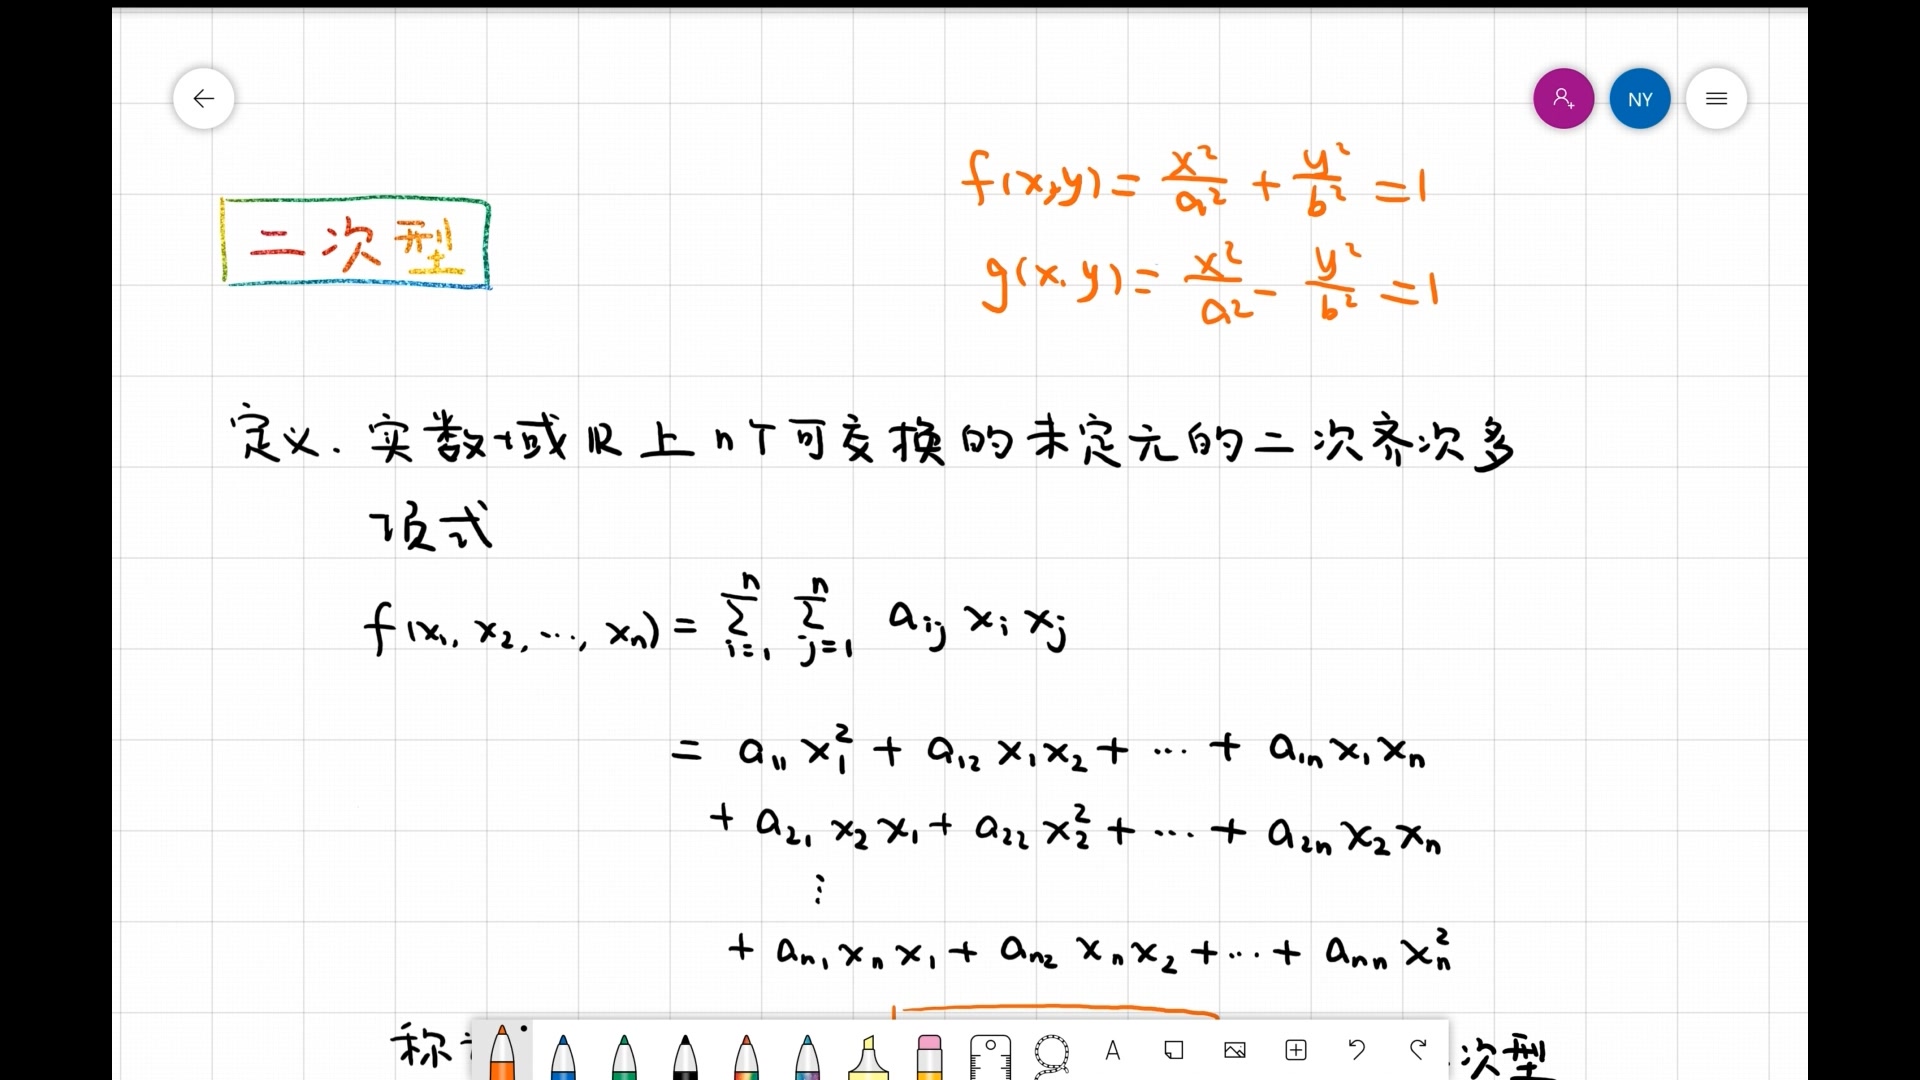 NY
f(x,y) = x²/a² + y²/b² = 1
二次型
g(x,y) = x²/a² - y²/b² = 1
定义. 实数域 ℝ 上 n个可交换的未定元的二次齐次多
项式
f(x₁, x₂, ..., xₙ) = ∑_{i=1}^{n} ∑_{j=1}^{n} a_{ij} x_i x_j
= a₁₁ x₁² + a₁₂ x₁x₂ + ... + a₁ₙ x₁xₙ
+ a₂₁ x₂x₁ + a₂₂ x₂² + ... + a₂ₙ x₂xₙ
⋮
+ aₙ₁ xₙx₁ + aₙ₂ xₙx₂ + ... + aₙₙ xₙ²
称 次型
A